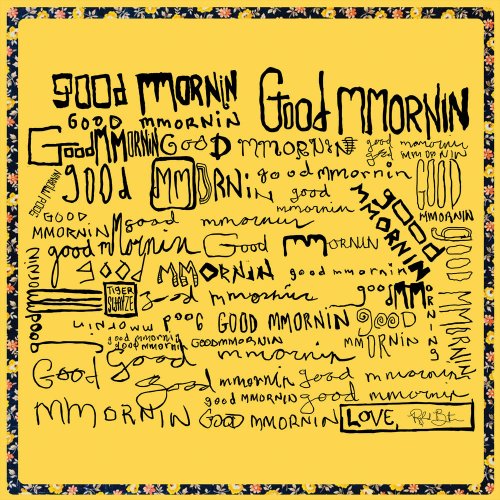 good MMORNiN Good MMORNIN
GOOD MMORNIN
Good MMORNIN GOOD MMORNIN good mmornin
good MMORNIN
good MMORNin good mmornin GOOD MMORNIN
good mmornin
MMORNIN GOOD
good MMORNIN
GOOD MMORNIN good mmornin
good MMornin Good MMORNIN
GOOD MMORNIN
good MMORNIN good mmornin
MMORNIN good
TIGER SWAYZE good mmornin good MMORNING
good mmornin GOOD MMORNIN good MMORNIN
good mmornin
good mmornin GOODMMORNIN
good mmornin
Good good mmornin good mmornin
good mmornin
MMORNIN GOOD MMORNIN LOVE,